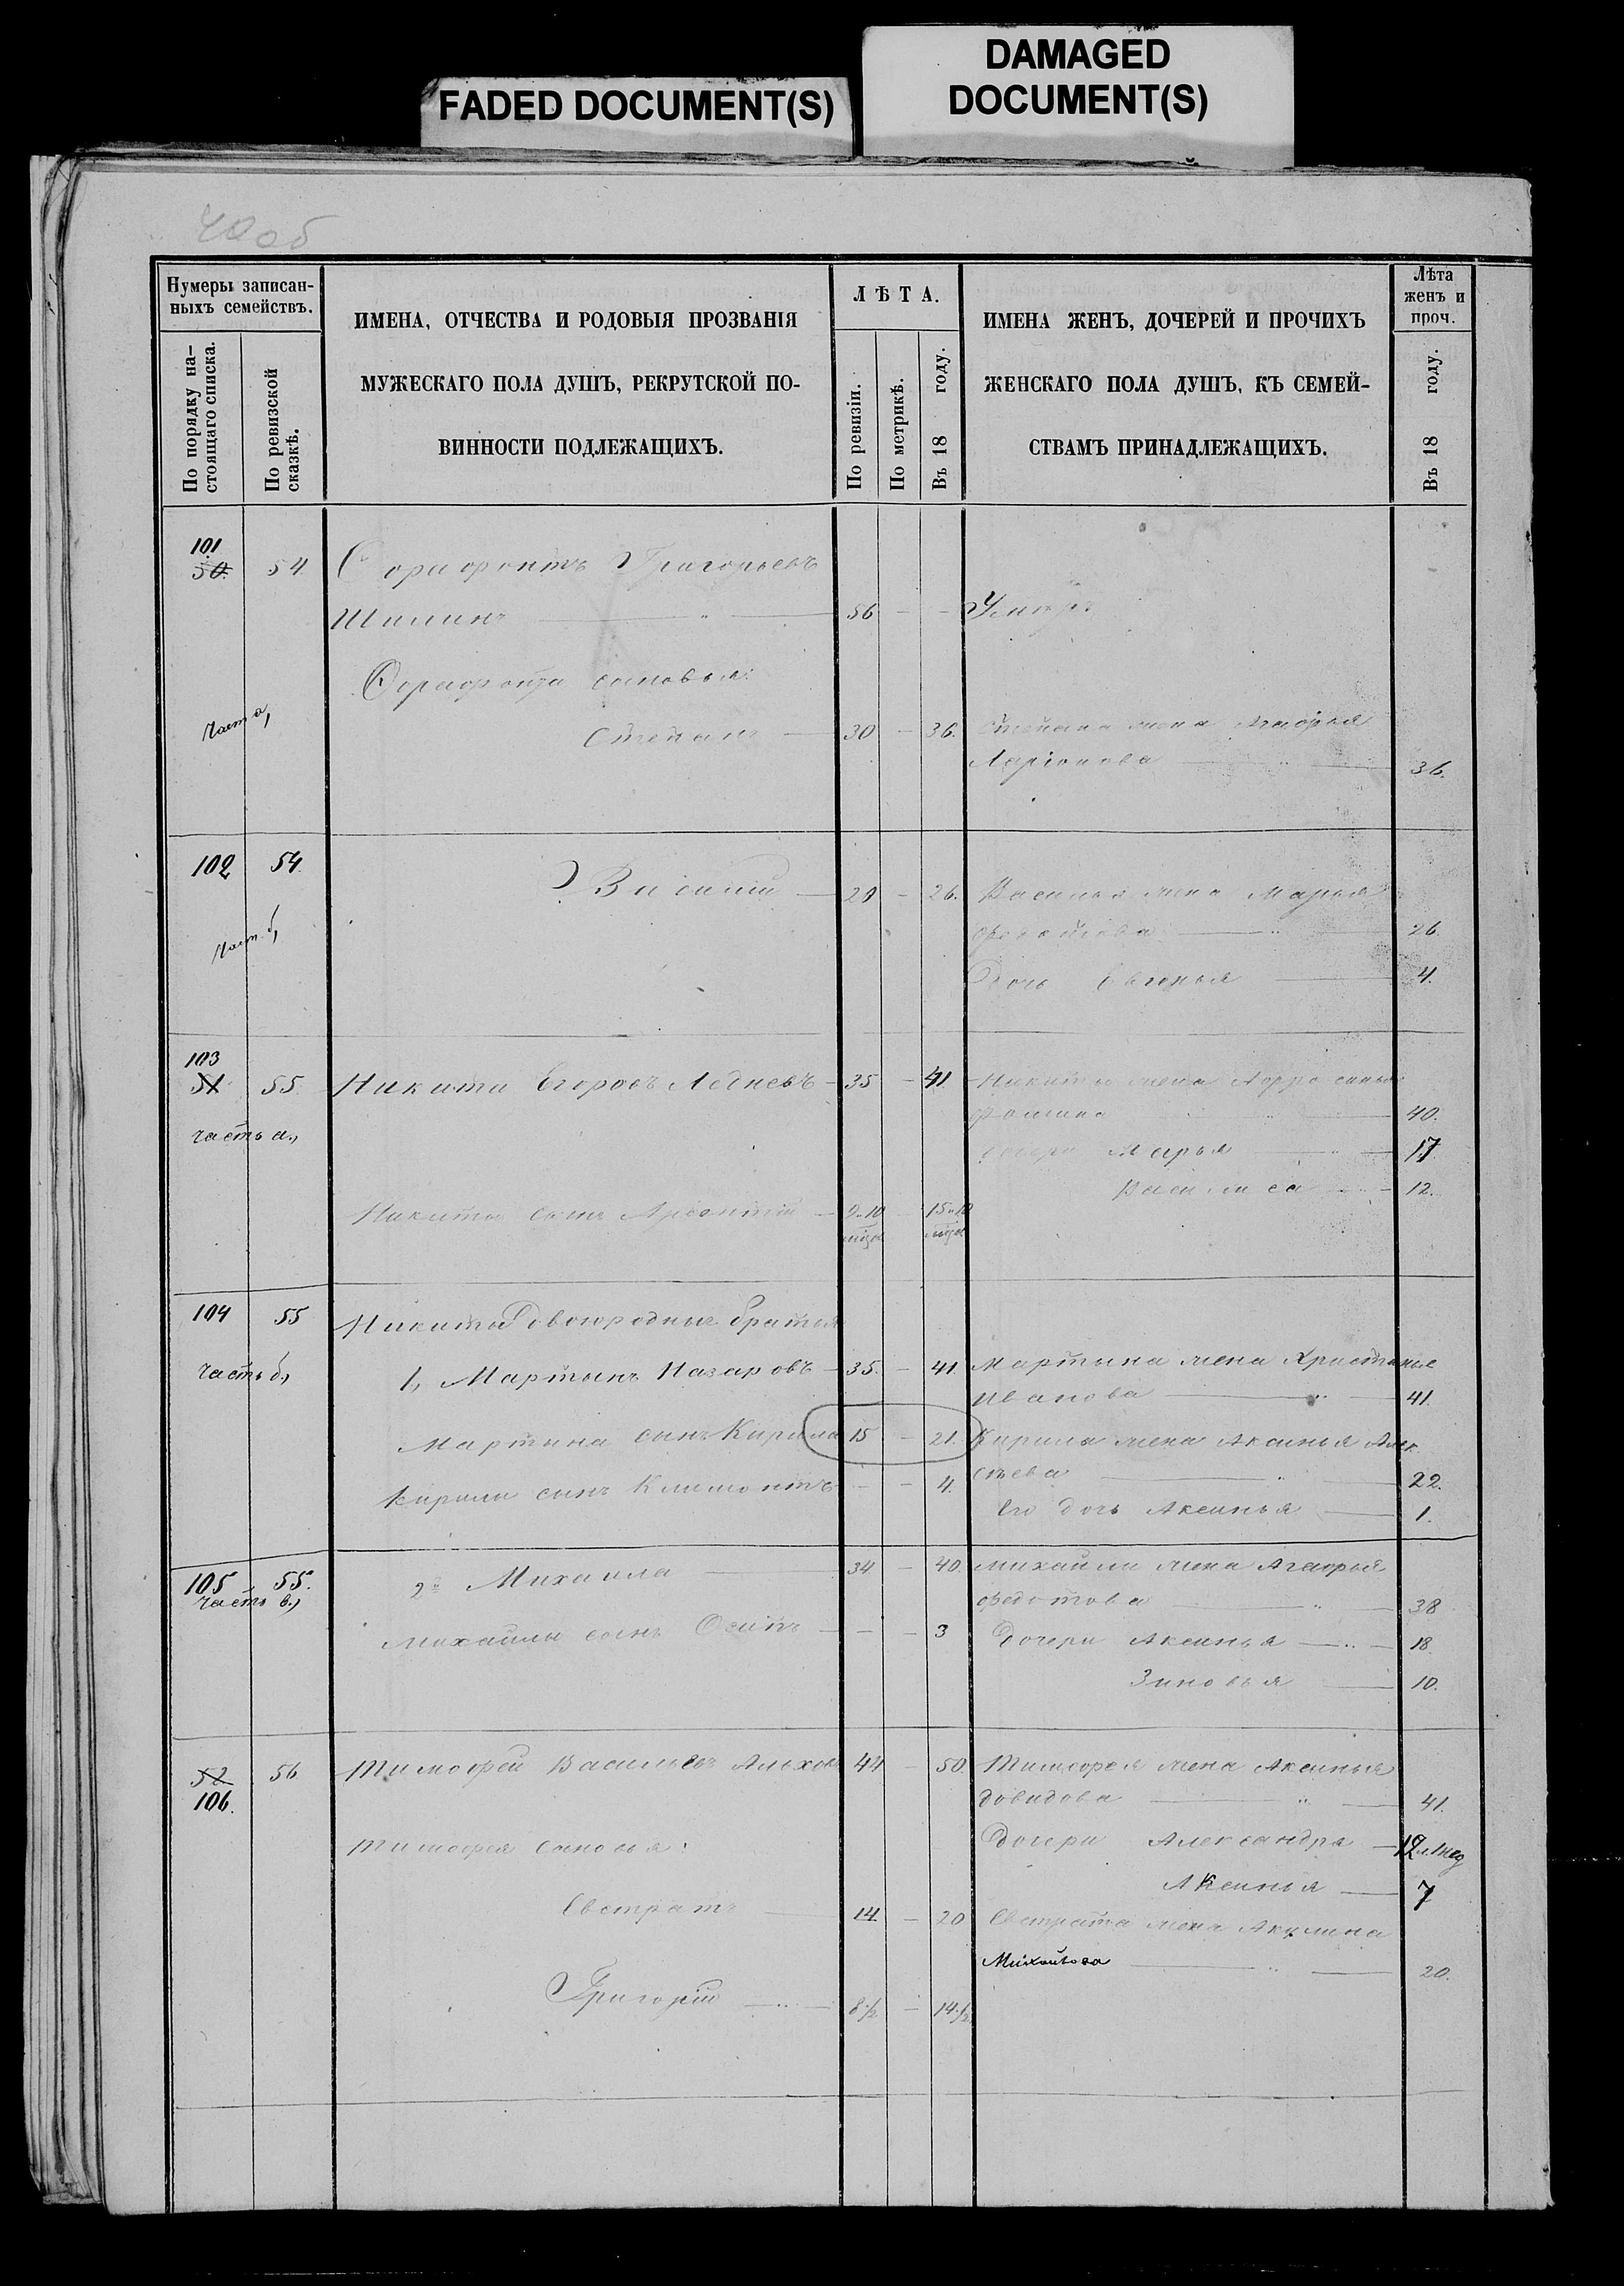 FADED DOCUMENT(S)
DAMAGED
DOCUMENT(S)
40 об
Нумеры записан-
ныхъ семействъ.
По порядку на-
стоящаго списка.
По ревизской
сказкѣ.
ИМЕНА, ОТЧЕСТВА И РОДОВЫЯ ПРОЗВАНІЯ
МУЖЕСКАГО ПОЛА ДУШЪ, РЕКРУТСКОЙ ПО-
ВИННОСТИ ПОДЛЕЖАЩИХЪ.
ЛѢТА.
По ревизіи.
По метрикѣ.
Въ 18 году.
ИМЕНА ЖЕНЪ, ДОЧЕРЕЙ И ПРОЧИХЪ
ЖЕНСКАГО ПОЛА ДУШЪ, КЪ СЕМЕЙ-
СТВАМЪ ПРИНАДЛЕЖАЩИХЪ.
Лѣта
женъ и
проч.
Въ 18 году.
101
50. 54 Григорьевъ
56 — — Умеръ
сыновья:
часть а,
Степанъ — 30 — 36. Степана жена Агафья
Ларіонова — " — 36.
102 54
Василій — 20 — 26. Василья жена Марья
часть б,
— " — 26.
Дочь Евгенья — 4.
103
51 55 Никита Егоровъ Ледневъ — 35 — 41 Никиты жена
Фомина " — 40.
часть а.,
дочери Марья — " — 17
Василиса — 12.
Никиты сынъ Арсентій — 9. 10 15. 10
мѣся мѣся
104 55 Никиты двоюродные братья
часть б.,
1, Мартынъ Назаровъ — 35. — 41. Мартына жена Христинья
Иванова — " — 41.
Мартина сынъ Кирила 15 — 21. Кирилы жена Аксинья Алек
сѣева — " — 22.
Кирилы сынъ Климонтъ — — 4.
Его дочь Аксинья — 1.
105 55.
часть в.,
2й Михаила — 34 — 40 Михайлы жена Агафья
Федотова — " — 38
Михайлы сынъ Осипъ — — — 3
Дочери Аксинья — " — 18.
Зиновья — 10.
52 56 Тимофей Васильевъ 44 — 50. Тимофея жена Аксинья
106.
Довидова — " — 41.
Тимофея сыновья:
Дочери Александра — 12
Аксинья — 7
Евстратъ — 14. — 20 Евстрата жена Акулина
Михайлова — " — 20.
Григорій — " — 8 1/2 — 14 1/2